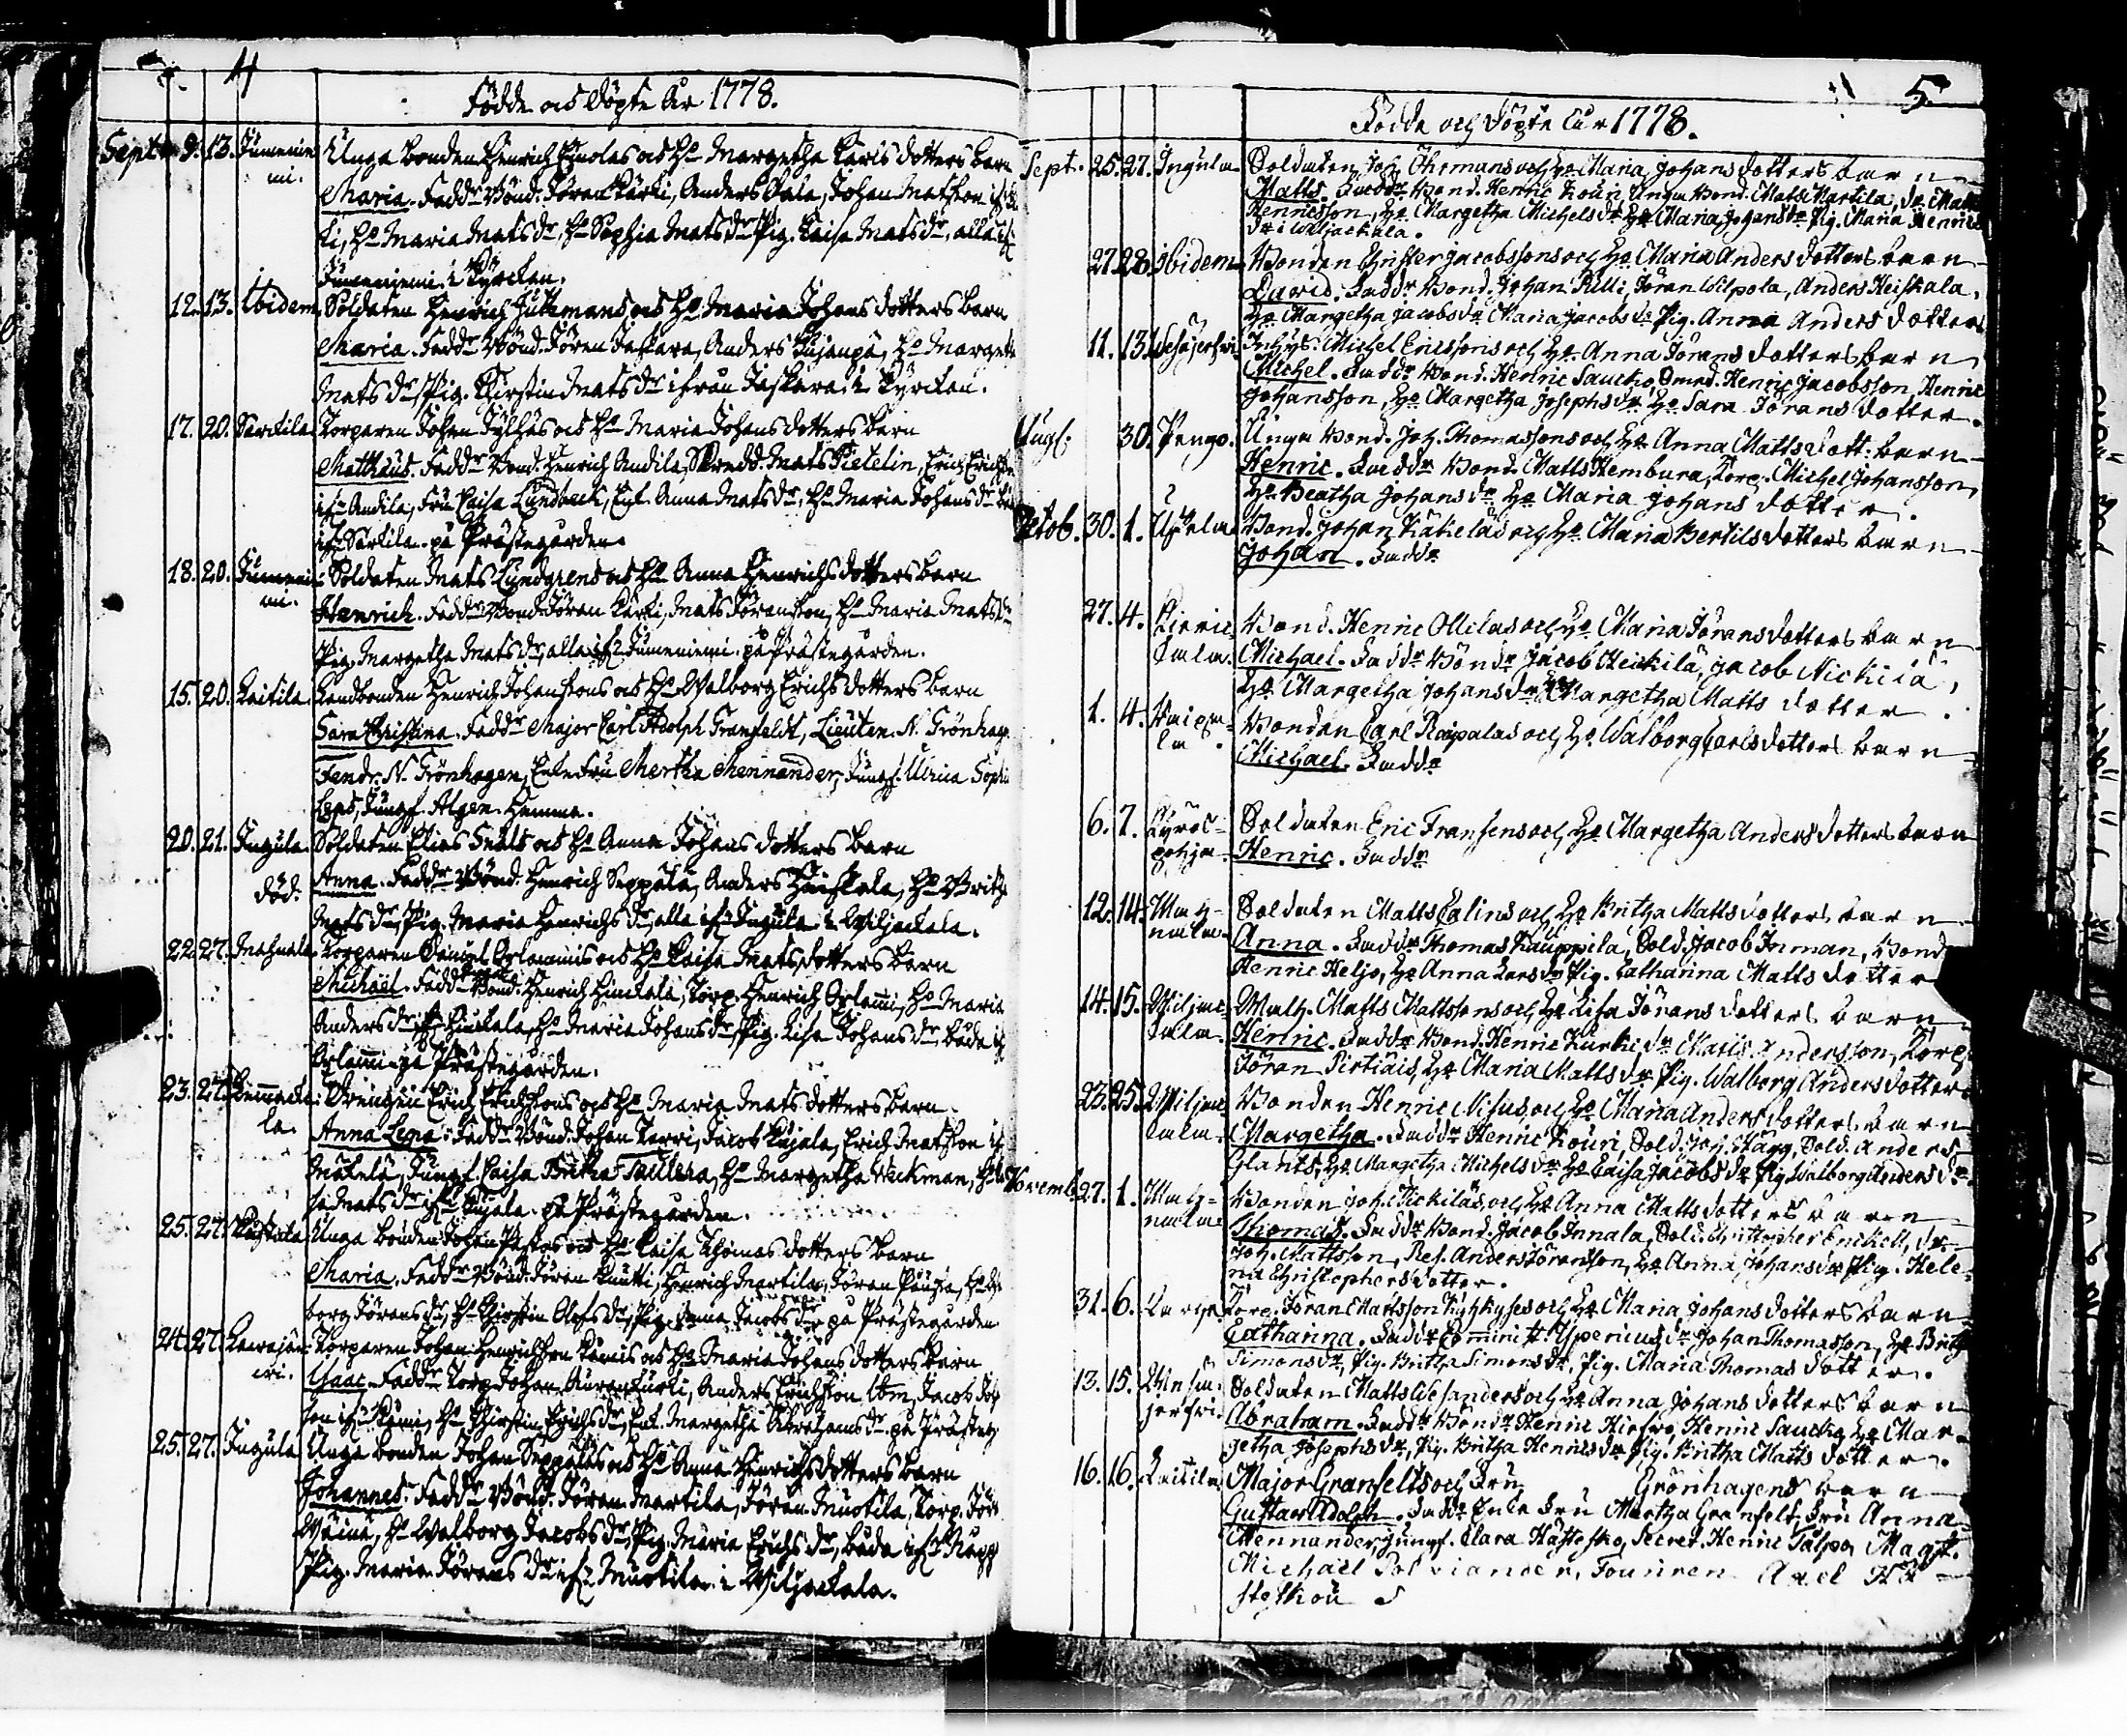 4
Födde och döpte År 1778.
Sept. 9. 13. Jumenie Unga bonden Henrich Hinolas och Ho Margetha Carls dotters barn
mi. Maria. Faddr Bönd. Jöran Kärki, Anders Pala, Johan Matsson
ki, Ho Maria Matsdr, Ho Sophia Matsdr, Pig. Caisa Matsdr, alla
Jumeniemi i Kyrckan.
12. 13. Ibidem Soldaten Henrich Huckmans och Ho Maria Johans dotters barn
Maria. Faddr Bönd. Jören Jaskara, Anders Kujanpä, Ho Margetha
Matsdr, Pig. Kirstin Matsdr ifrån Jaskara. i Kyrckan.
17. 20. Särckila Torparen Johan Sylhäs och Ho Maria Johans dotters barn
Matthäus. Faddr Bond. Henrich Andila, Skredd. Mats Pietelin, Erich Erichss.
ifr. Andila, Fru Caisa Lundbeck, Enk. Anna Matsdr, Ho Maria Johansdr
ifr. Särkila. på Prästegården.
18. 20. Jumenie Soldaten Mats Lundgrens och Ho Anna Henrichsdotters barn
mi. Henrich. Faddr Bond. Jöran Kärki, Mats Jöransson, Ho Maria Matsdr
Pig. Margetha Matsdr, alla ifr. Jumeniemi. på Prästegården.
15. 20. Laitila Landbonden Henrich Johanssons och Ho Walborg Erichs dotters barn
Sara Christina. Faddr Major Carl Adolph Granfeldt, Lieuten. N. Grönhagen
Fendr. N. Grönhagen, Enkefru Mertha Mennander, Jungf. Ulrica Sophia
Leps, Jungf. Algen. Hemma.
20. 21. Ingula Soldaten Elias Snäls och Ho Anna Johans dotters barn
död. Anna. Faddr Bönd. Henrich Seppälä, Anders Heiskala, Ho Britha
Matsdr, Pig. Maria Henrichsdr, alla ifr. Ingula. i Wiljackala.
22. 27. Mahnala Torparen Samuel Orlammis och Ho Caisa Mats dotters barn
Michäel. Faddr Bond. Henrich Hinckala, Torp. Henrich Orlammi, Ho Maria
Andersdr ifr. Hinckala, Ho Maria Johansdr, Pig. Lisa Johansdr båda ifr.
Orlammi. på Prästegården.
23. 27. Lemmacka Drengen Erich Erichssons och Ho Maria Mats dotters barn
la. Anna Lena. Faddr Bönd. Johan Tarri, Jacob Kujala, Erich Matsson ifr.
Mäkelä, Jungf. Caisa Britha Paulera, Ho Margetha Weckman, Ho
sa Matsdr ifr. Kujala. på Prästegården.
25. 27. Unga bonden Johan Pastos och Ho Caisa Thomas dotters barn
Maria. Faddr Bönd. Jören Knutti, Henrich Martila, Jören Ho Wal
borg Jöransdr, Ho Christin Olofsdr, Pig. Anna Jacobsdr på Prästegården
24. 27. Lawajär Torparen Johan Henrichsson Kämis och Ho Maria Johans dotters barn
wi. Isaac. Faddr Torp. Johan Auranskurki, Anders Erichsson ibm, Jacob Joh
son ifr. Kämi, Ho Christin Erichsdr, Enk. Margetha Abrahamsdr. på Prästeg.
25. 27. Ingula Unga bonden Johan Seppäläs och Ho Anna Henrichsdotters barn
Johannes. Faddr Bönd. Jören Martila, Jöran Muotila, Torp. Jör.
Wäinä, Ho Walborg Jacobsdr, Pig. Maria Erichsdr, båda ifr.
Pig. Maria Jöransdr ifr. Muotila. i Wiljackala.
5.
Födde och Döpte År 1778.
Sept. 25. 27. Ingula Soldaten Joh. Öhrmans och Ho Maria Johans dotters barn
Matts. Faddr Bond. Henric Kouri, Unga Bond. Matts Martila, Dr. Matts
Henricsson, Ho Margetha Michelsdr Ho Maria Johansdr Pig. Maria Henrics
dr i Wiljackala.
27. 28. Ibidem Bonden Christer Jacobssons och Ho Maria Anders dotters barn
David. Faddr Bönd. Johan Pilli, Jöran Wilpola, Anders Heiskala,
Ho Margetha Jacobsdr Maria Jacobsdr Pig. Anna Anders dotter
11. 13. Wesajerfwi Inhys. Michel Ericssons och Ho Anna Jörans dotters barn
Michel. Faddr Bond. Henric Saucko, Smed. Henric Jacobsson, Henric
Johansson, Ho Margetha Josephsdr Ho Sara Jörans dotter.
Aug. 30. Pengo. Unga Bond. Joh. Thomassons och Ho Anna Matts dott. barn
Henric. Faddr Bond. Matts Hembura, Torp. Michel Johansson,
Ho Beatha Johansdr Ho Maria Johans dotter.
Octob. 30. 1. Bond. Johan Käkeläs och Ho Maria Bertils dotters barn
Johan. Faddr
27. 4. Bond. Henric Ollilas och Ho Maria Jörans dotters barn
Michael. Faddr Bönd. Jacob Heickilä, Jacob Nickilä,
Ho Margetha Johansdr Margetha Matts dotter.
1. 4. Raipa Bonden Carl Raipalas och Ho Walborg Carls dotters barn
la. Michael. Faddr
6. 7. Kyrös- Soldaten Eric Fransens och Ho Margetha Anders dotters barn
pohja. Henric. Faddr
12. 14. Mah- Soldaten Matts Calins och Ho Britha Matts dotters barn
nala. Anna. Faddr Thomas Kauppila, Sold. Jacob Inman, Bond.
Henric Heljo, Ho Anna Larsdr Pig. Catharina Matts dotter
14. 15. Wiljac- Walh. Matts Mattssons och Ho Lisa Jörans dotters barn
kala. Henric. Faddr Bond. Henric Kurki, Dr Matts Andersson, Torp.
Jöran Pirtiäis, Ho Maria Mattsdr Pig. Walborg Anders dotter.
23. 25. Wiljac Bonden Henric Nisus och Ho Maria Anders dotters barn
kala. Margetha. Faddr Henric Kouri, Sold. Joh. Stägg, Sold. Anders
Glants, Ho Margetha Michelsdr Ho Caisa Jacobsdr Pig. Walborg Andersdr
Novemb. 27. 1. Mah- Bonden Joh. Nickiläs och Ho Anna Matts dotters barn
nala Thomas. Faddr Bond. Jacob Innala, Sold. Christopher Enckell, Dr
Joh. Mattsson, Ref. Anders Jöransson, Ho Anna Johansdr Pig. Hele-
na Christophers dotter.
31. 6. Torp. Jöran Mattsson Kyhkyses och Ho Maria Johans dotters barn
Catharina. Faddr Cominist. Ypenius, Dr Johan Thomasson, Ho Britha
Simonsdr, Pig. Britha Simonsdr, Pig. Maria Thomas dotter.
13. 15. Wesa Soldaten Matts Wesanders och Ho Anna Johans dotters barn
jerfvi. Abraham. Faddr Bönd. Henric Hirfwo, Henric Saucko, Ho Mar-
getha Josephsdr, Pig. Britha Henricsdr Pig. Britha Matts dotter.
16. 16. Laitila Major Granfelts och Fru Grönhagens barn
Gustaf Adolph. Faddr Enke Fru Märtha Granfelt, Fru Anna
Mennander, Jungf. Clara Hästesko, Secret. Henric Salpo, Magist.
Michael Polviander, Founren Axel Hä-
steskou